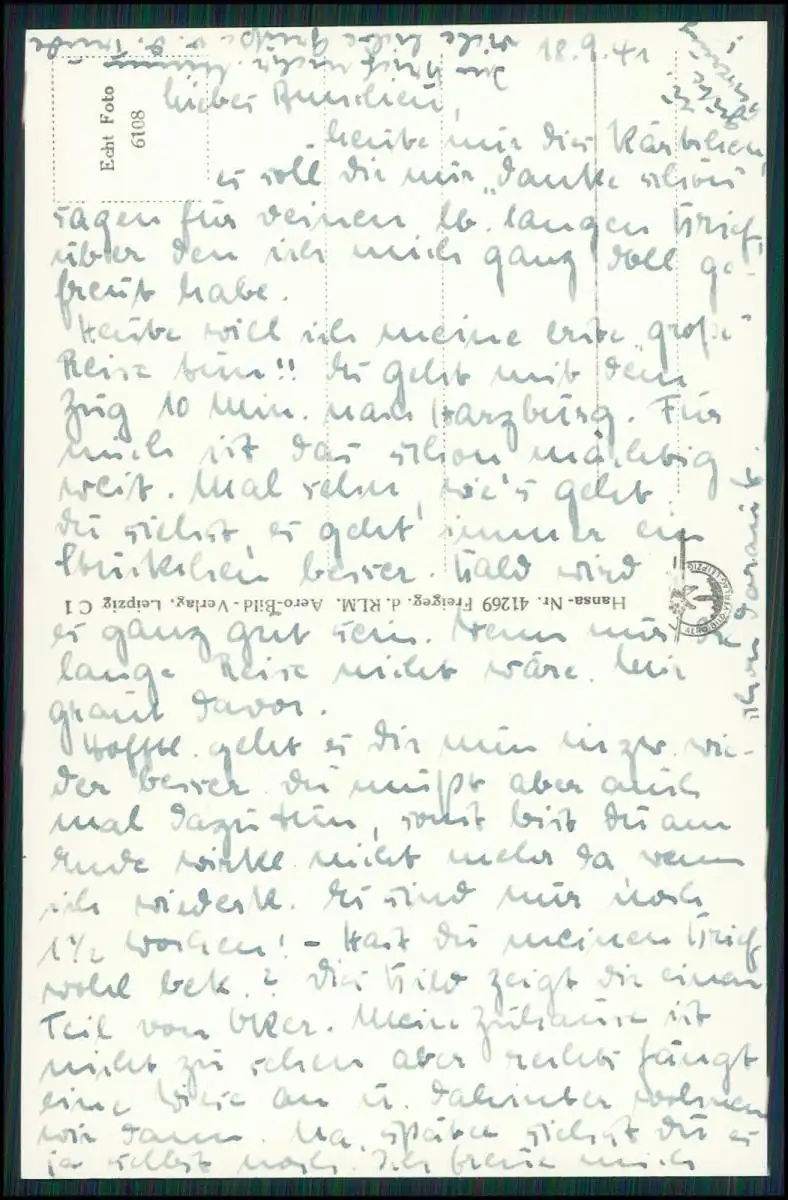 18.9.41
Liebes Annchen,
heute nur dies Kärtchen,
es soll dir nur "danke schön"
sagen für deinen lb. langen Brief,
über den ich mich ganz doll ge-
freut habe.
Heute will ich meine erste "große"
Reise tun!! Es geht mit dem
Zug 10 Min. nach Harzburg. Für
mich ist das schon mächtig
weit. Mal sehn, wie's geht.
Du siehst, es geht immer ein
bisschen besser. Bald wird
es ganz gut sein. Wenn nur die
lange Reise nicht wäre. Mir
graut davor.
Hofftl. geht es dir nun inzw. wie-
der besser. Du mußt aber auch
mal dazu tun, sonst bist du am
Ende wirkl. nicht mehr da, wenn
ich wiederk. Es sind nur noch
1½ Wochen! - Hast du meinen Brief
wohl bek.? Dies Bild zeigt dir einen
Teil von Oker. Mein Zuhause ist
nicht zu sehen aber rechts fängt
eine Wiese an u. dahinter wohnen
wir dann. Na, später siehst du es
ja selbst noch. Ich freue mich
schon darauf.
viele liebe Grüße v. d. Trude
Echt Foto
6108
Hansa-Nr. 41269 Freigeg. d. RLM. Aero-Bild-Verlag, Leipzig C 1
AERO-BILD-VERLAG-LEIPZIG